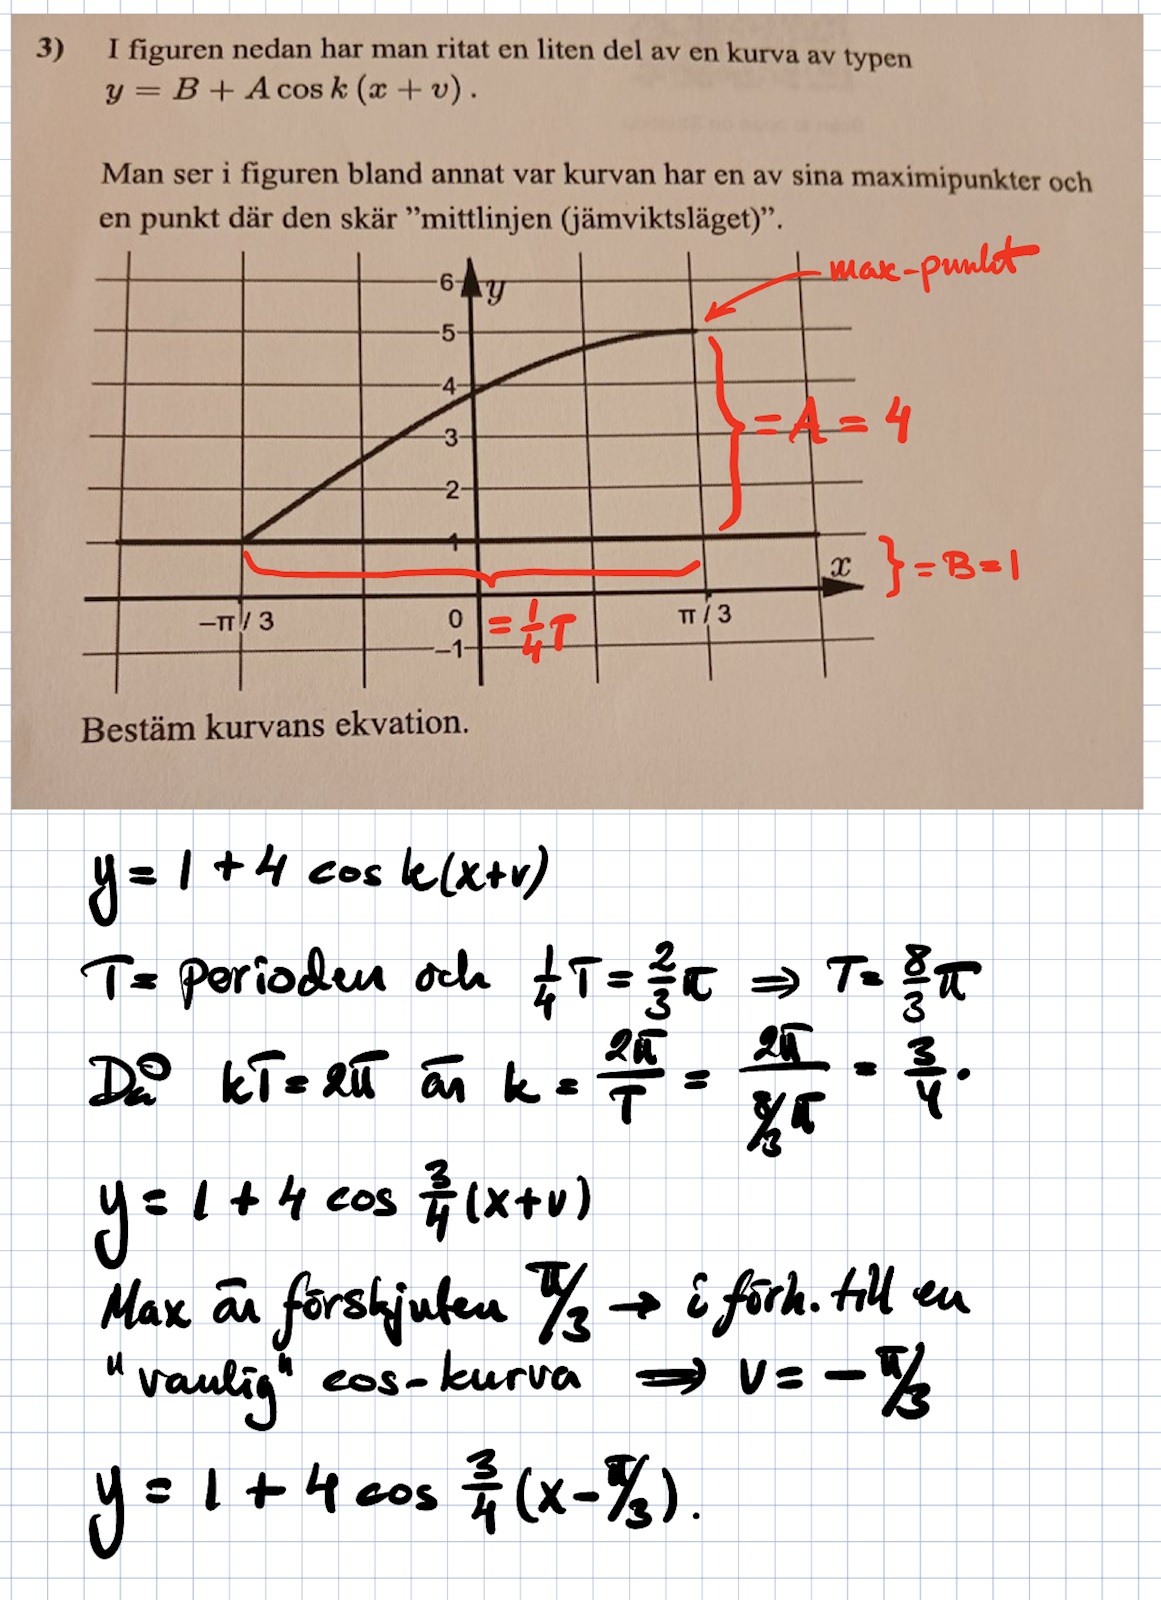 3) I figuren nedan har man ritat en liten del av en kurva av typen
y = B + A cos k (x + v) .
Man ser i figuren bland annat var kurvan har en av sina maximipunkter och
en punkt där den skär ”mittlinjen (jämviktsläget)”.
max-punkt
6 y
5
4
= A = 4
3
2
1
x } = B = 1
−π / 3 0 = 1/4 T π / 3
−1
Bestäm kurvans ekvation.
y = 1 + 4 cos k(x+v)
T = perioden och 1/4 T = 2/3 π ⇒ T = 8/3 π
Då kT = 2π är k = 2π/T = 2π/(8/3 π) = 3/4.
y = 1 + 4 cos 3/4 (x+v)
Max är förskjuten π/3 → i förh. till en
"vanlig" cos-kurva ⇒ v = −π/3
y = 1 + 4 cos 3/4 (x − π/3).